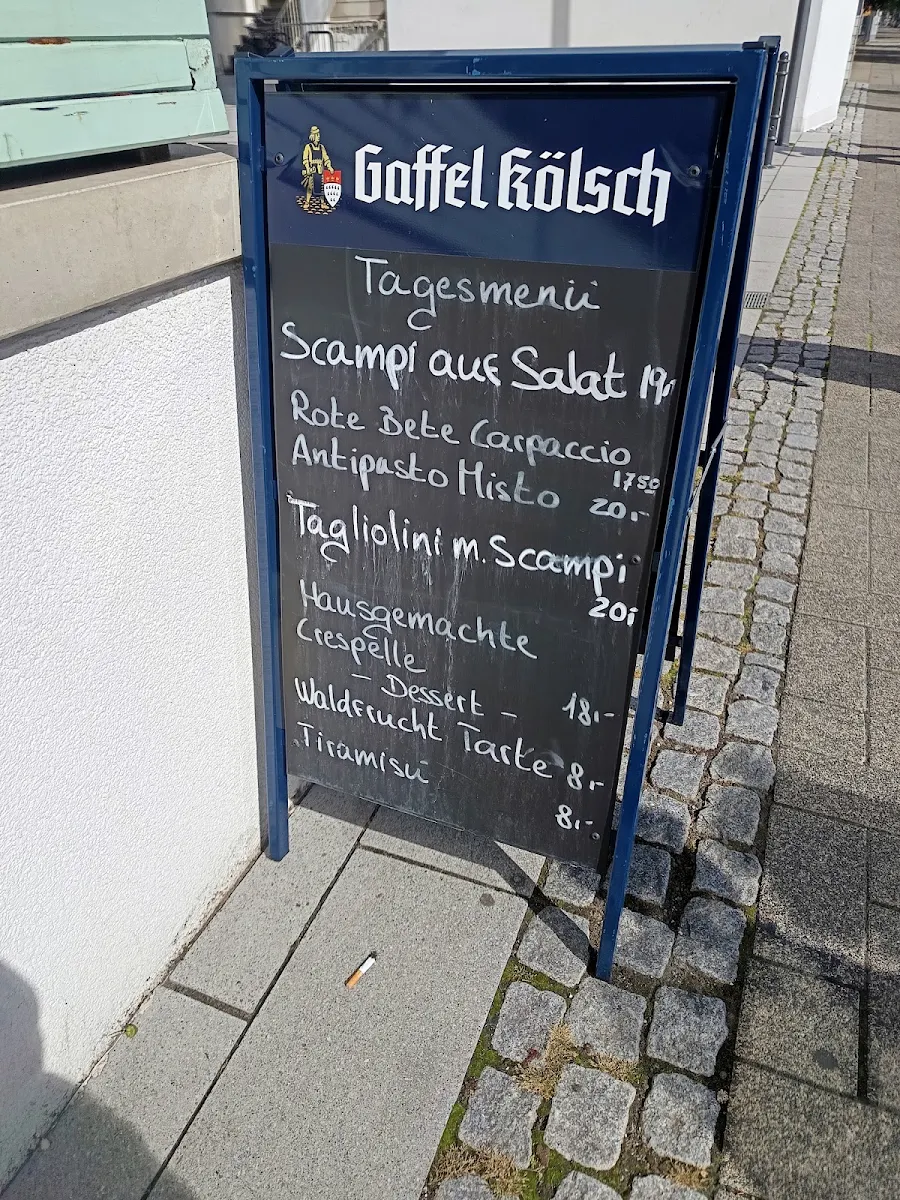 Gaffel Kölsch
Tagesmenü
Scampi auf Salat 19,-
Rote Bete Carpaccio
17 50
Antipasto Misto 20,-
Tagliolini m. Scampi
20,-
Hausgemachte
Crespelle
18,-
- Dessert -
Waldfrucht Tarte 8,-
Tiramisu
8,-